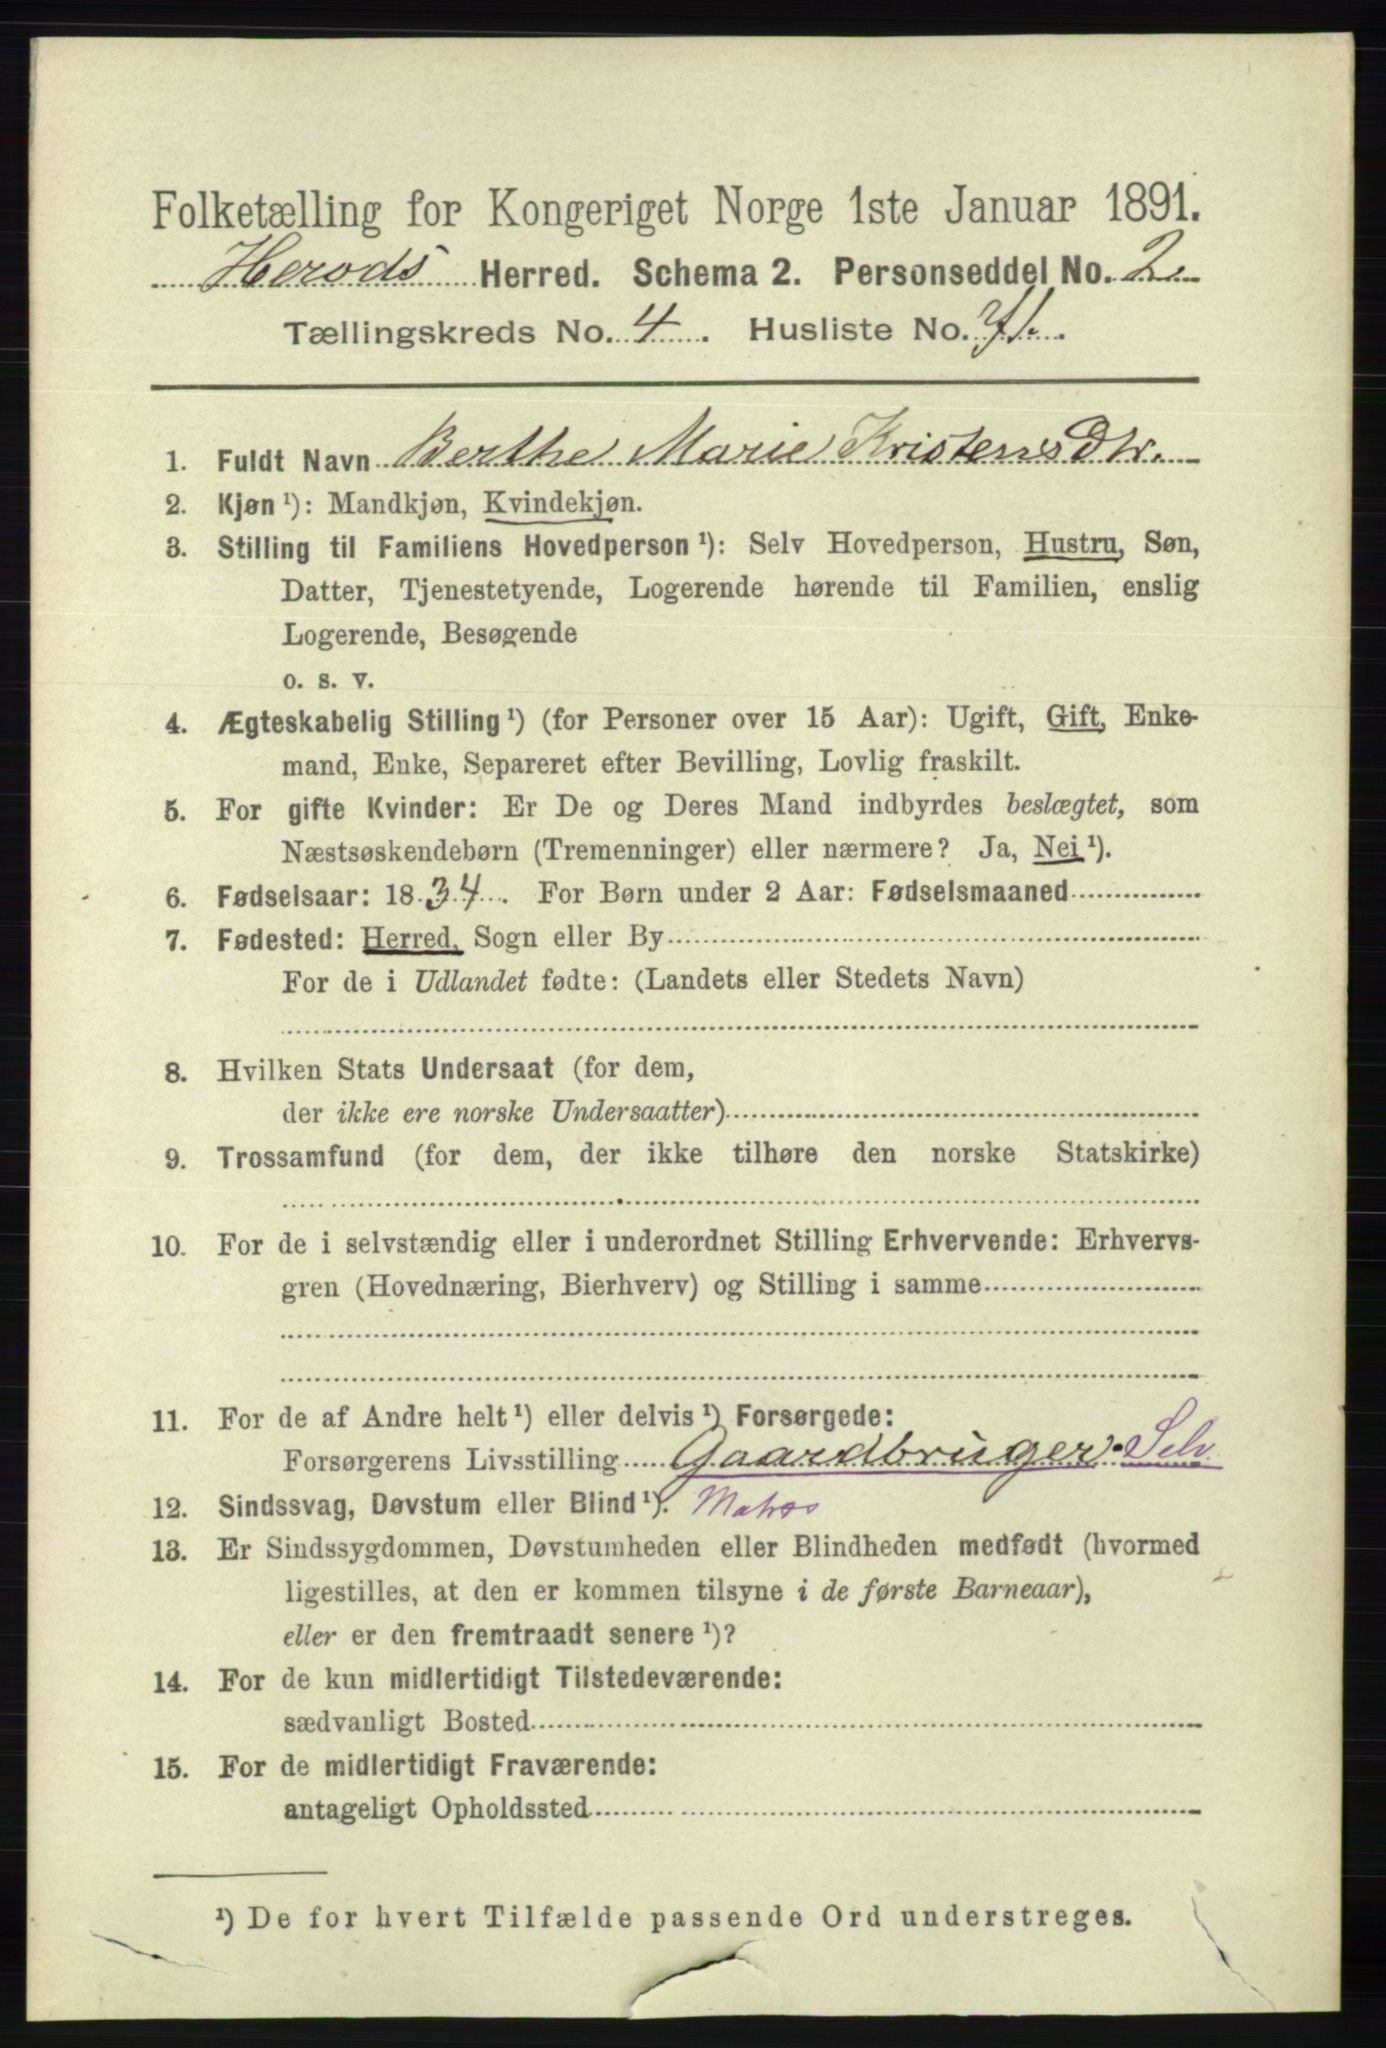 Folketælling for Kongeriget Norge 1ste Januar 1891.
Herods Herred. Schema 2. Personseddel No. 2.
Tællingskreds No. 4. Husliste No.
1. Fuldt Navn Berthe Marie Kristens Dtr.
2. Kjøn¹): Mandkjøn, Kvindekjøn.
3. Stilling til Familiens Hovedperson¹): Selv Hovedperson, Hustru, Søn,
Datter, Tjenestetyende, Logerende hørende til Familien, enslig
Logerende, Besøgende
o. s. v.
4. Ægteskabelig Stilling¹) (for Personer over 15 Aar): Ugift, Gift, Enke-
mand, Enke, Separeret efter Bevilling, Lovlig fraskilt.
5. For gifte Kvinder: Er De og Deres Mand indbyrdes beslægtet, som
Næstsøskendebørn (Tremenninger) eller nærmere? Ja, Nei¹).
6. Fødselsaar: 1834. For Børn under 2 Aar: Fødselsmaaned
7. Fødested: Herred, Sogn eller By
For de i Udlandet fødte: (Landets eller Stedets Navn)
8. Hvilken Stats Undersaat (for dem,
der ikke ere norske Undersaatter)
9. Trossamfund (for dem, der ikke tilhøre den norske Statskirke)
10. For de i selvstændig eller i underordnet Stilling Erhvervende: Erhvervs-
gren (Hovednæring, Bierhverv) og Stilling i samme
11. For de af Andre helt¹) eller delvis¹) Forsørgede:
Forsørgerens Livsstilling Gaardbruger. Selv
12. Sindssvag, Døvstum eller Blind¹). Matros
13. Er Sindssygdommen, Døvstumheden eller Blindheden medfødt (hvormed
ligestilles, at den er kommen tilsyne i de første Barneaar),
eller er den fremtraadt senere¹)?
14. For de kun midlertidigt Tilstedeværende:
sædvanligt Bosted
15. For de midlertidigt Fraværende:
antageligt Opholdssted
¹) De for hvert Tilfælde passende Ord understreges.